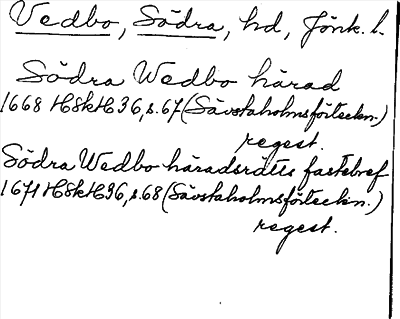 Vedbo, Södra, hd, Jönk. l.
Södra Wedbo härad
1668 HSkH 36, s. 67 (Sävstaholmsförteckn.)
regest.
Södra Wedbo häradsrätts fastebref
1671 HSkH 36, s. 68 (Sävstaholmsförteckn.)
regest.